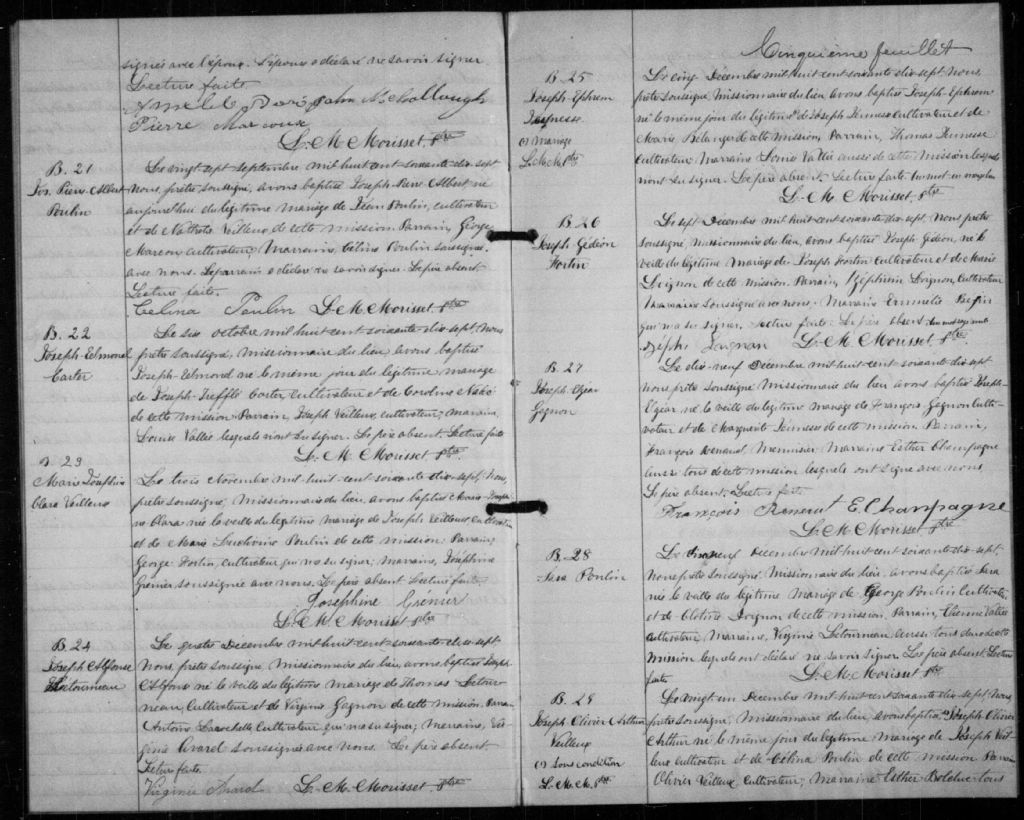 signés avec l'époux. L'épouse a déclaré ne savoir signer
Lecture faite.
John McCollough
Pierre Marcoux
L. M. Morisset, Ptre
B. 21
Jos. Pierre Albert
Poulin
Le vingt sept septembre mil huit cent soixante dix sept
Nous, prêtre soussigné, avons baptisé Joseph-Pierre Albert, né
aujourd'hui du légitime mariage de Jean Poulin, cultivateur
et de Veilleux de cette mission. Parrain, George
Marcoux cultivateur, Marraine, Célina Poulin soussignée
avec nous. Le parrain a déclaré ne savoir signer. Le père absent
Lecture faite.
Celina Poulin L. M. Morisset, Ptre
B. 22
Joseph-Edmond
Carter
Le six octobre mil huit cent soixante dix-sept, Nous
prêtre soussigné, missionnaire du lieu, avons baptisé
Joseph-Edmond né le même jour du légitime mariage
de Joseph-Treffle Carter, Cultivateur et de Caroline
de cette mission. Parrain, Joseph Veilleux, cultivateur, marraine,
Louise Vallée lesquels n'ont su signer. Le père absent. Lecture faite
L. M. Morisset, Ptre.
B. 23
Marie Joséphine
Clara Veilleux
Le trois Novembre mil huit cent soixante dix-sept, Nous,
prêtre soussigné, Missionnaire du lieu, avons baptisé Marie-Joséphi-
ne-Clara née la veille du légitime mariage de Joseph Veilleux, Cultivateur
et de Marie Poulin de cette mission. Parrain,
George Fortin, cultivateur qui n'a su signer; marraine, Joséphine
Grenier soussignée avec nous. Le père absent Lecture faite
Joséphine Grénier
L. M. Morisset Ptre
B. 24
Joseph Alfonse
Létourneau
Le quatre Décembre mil huit cent soixante dix sept
Nous, prêtre soussigné, missionnaire du lieu, avons baptisé Joseph
Alfonse né la veille du légitime mariage de Thomas Létour-
neau Cultivateur et de Virginie Gagnon de cette mission. Parrain
Antoine Larochelle Cultivateur qui n'a su signer; marraine, Vir-
ginie Avard soussignée avec nous. Le père absent
Lecture faite.
Virginie Avard L. M. Morisset, Ptre
Cinquième feuillet
B. 25
Joseph-Ephrem
Jeunesse
(1) mariage
L. M. M. Ptre
Le cinq Décembre mil huit cent soixante dix-sept, Nous,
prêtre soussigné, Missionnaire du lieu, avons baptisé Joseph-Ephrem
né le même jour du légitime (1) de Joseph Jeunesse Cultivateur et de
Marie Bélanger de cette mission. Parrain, Thomas Jeunesse
Cultivateur Marraine Louise Vallée aussi de cette mission lesquels
n'ont su signer. Le père absent. Lecture faite. Un mot en marge bon
L. M. Morisset, Ptre
B. 26
Joseph Gédéon
Fortin
Le sept Décembre mil huit cent soixante dix-sept, Nous prêtre
soussigné, missionnaire du lieu, avons baptisé Joseph Gédéon, né la
veille du légitime Mariage de Joseph Fortin Cultivateur et de Marie
Loignon de cette mission. Parrain, Zéphirin Loignon, Cultivateur
soussigné avec nous. Marraine Emmelie
qui n'a su signer, Lecture faite. Le père absent
Loignon L. M. Morisset, Ptre.
B. 27
Joseph Elzéar
Gagnon
Le dix-neuf Décembre mil huit cent soixante dix-sept
Nous prêtre soussigné Missionnaire du lieu avons baptisé Joseph-
Elzéar né la veille du légitime mariage de François Gagnon Culti-
vateur et de Marguerite Jeunesse de cette mission. Parrain,
François Renaud, Menuisier, Marraine Esther Champagne
tous de cette mission lesquels ont signé avec nous.
Le père absent. Lecture faite
François Renaud E. Champagne
L. M. Morisset Ptre
B. 28
Sara Poulin
Le dix neuf Décembre mil huit cent soixante dix-sept,
Nous prêtre soussigné Missionnaire du lieu, avons baptisé Sara
née la veille du légitime Mariage de George Poulin Cultivateur
et de Clotide Loignon de cette mission. Parrain, Etienne Vallée
cultivateur, Marraine, Virginie Létourneau, aussi tous deux de cette
mission lesquels ont déclaré ne savoir signer Le père absent Lecture
faite L. M. Morisset Ptre
B. 29
Joseph Olivier Arthur
Veilleux
(1) Sous condition
L. M. M. Ptre.
Le vingt un Décembre mil huit cent soixante dix sept, Nous
prêtre soussigné, Missionnaire du lieu, avons baptisé (1) Joseph Olivier
Arthur né le même jour du légitime mariage de Joseph Veil-
leux cultivateur et de Célina Poulin de cette mission Parrain
Olivier Veilleux, Cultivateur; marraine Esther Bolduc tous